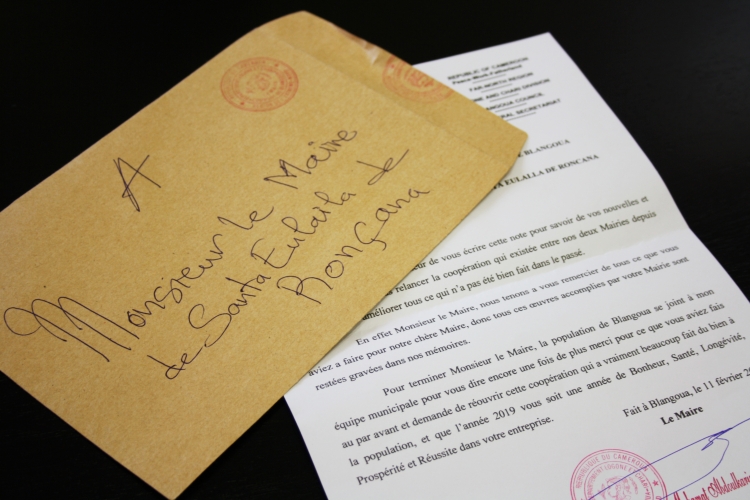 A
Monsieur le Maire
de Santa Eulaila de
Ronçana
REPUBLIC OF CAMEROON
Peace-Work-Fatherland
FAR-NORTH REGION
AND CHARI DIVISION
COUNCIL
SECRETARIAT
BLANGOUA
EULALLA DE RONCANA
de vous écrire cette note pour savoir de vos nouvelles et
relancer la coopération qui existée entre nos deux Mairies depuis
améliorer tous ce qui n'a pas été bien fait dans le passé.
En effet Monsieur le Maire, nous tenons a vous remercier de tous ce que vous
aviez a faire pour notre chère Maire, donc tous ces œuvres accomplies par votre Mairie sont
restées gravées dans nos mémoires.
Pour terminer Monsieur le Maire, la population de Blangoua se joint à mon
équipe municipale pour vous dire encore une fois de plus merci pour ce que vous aviez fais
au par avant et demande de réouvrir cette coopération qui a vraiment beaucoup fait du bien à
la population, et que l'année 2019 vous soit une année de Bonheur, Santé, Longévité,
Prospérité et Réussite dans votre entreprise.
Fait à Blangoua, le 11 février
Le Maire
REPUBLIQUE DU CAMEROUN